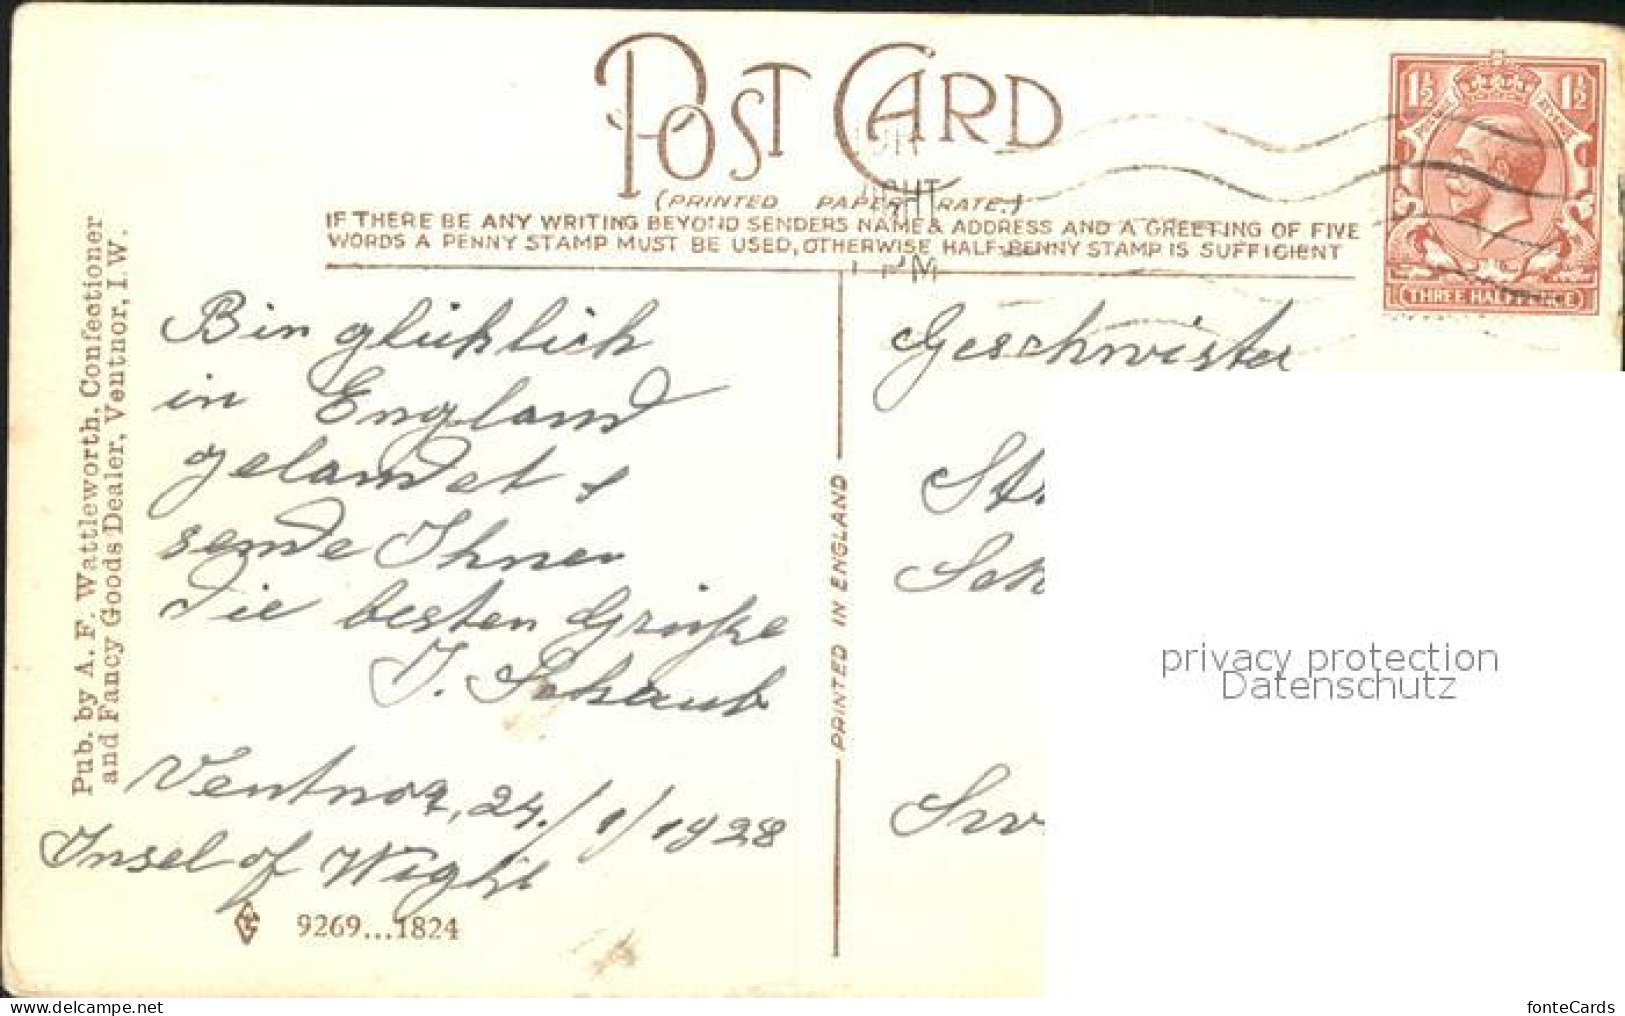 POST CARD
(PRINTED PAPER RATE.)
IF THERE BE ANY WRITING BEYOND SENDERS NAME & ADDRESS AND A GREETING OF FIVE
WORDS A PENNY STAMP MUST BE USED, OTHERWISE HALF-PENNY STAMP IS SUFFICIENT
1½ 1½
POSTAGE REVENUE
THREE HALFPENCE
PM
Pub. by A. F. Wattleworth, Confectioner
and Fancy Goods Dealer, Ventnor, I.W.
Bin glücklich
in England
gelandet &
sende Ihnen
die besten Grüße
J. Schaub
Ventnor, 24./1/1928
Insel of Wight
9269...1824
PRINTED IN ENGLAND
Geschwister
privacy protection
Datenschutz
www.delcampe.net
fonteCards